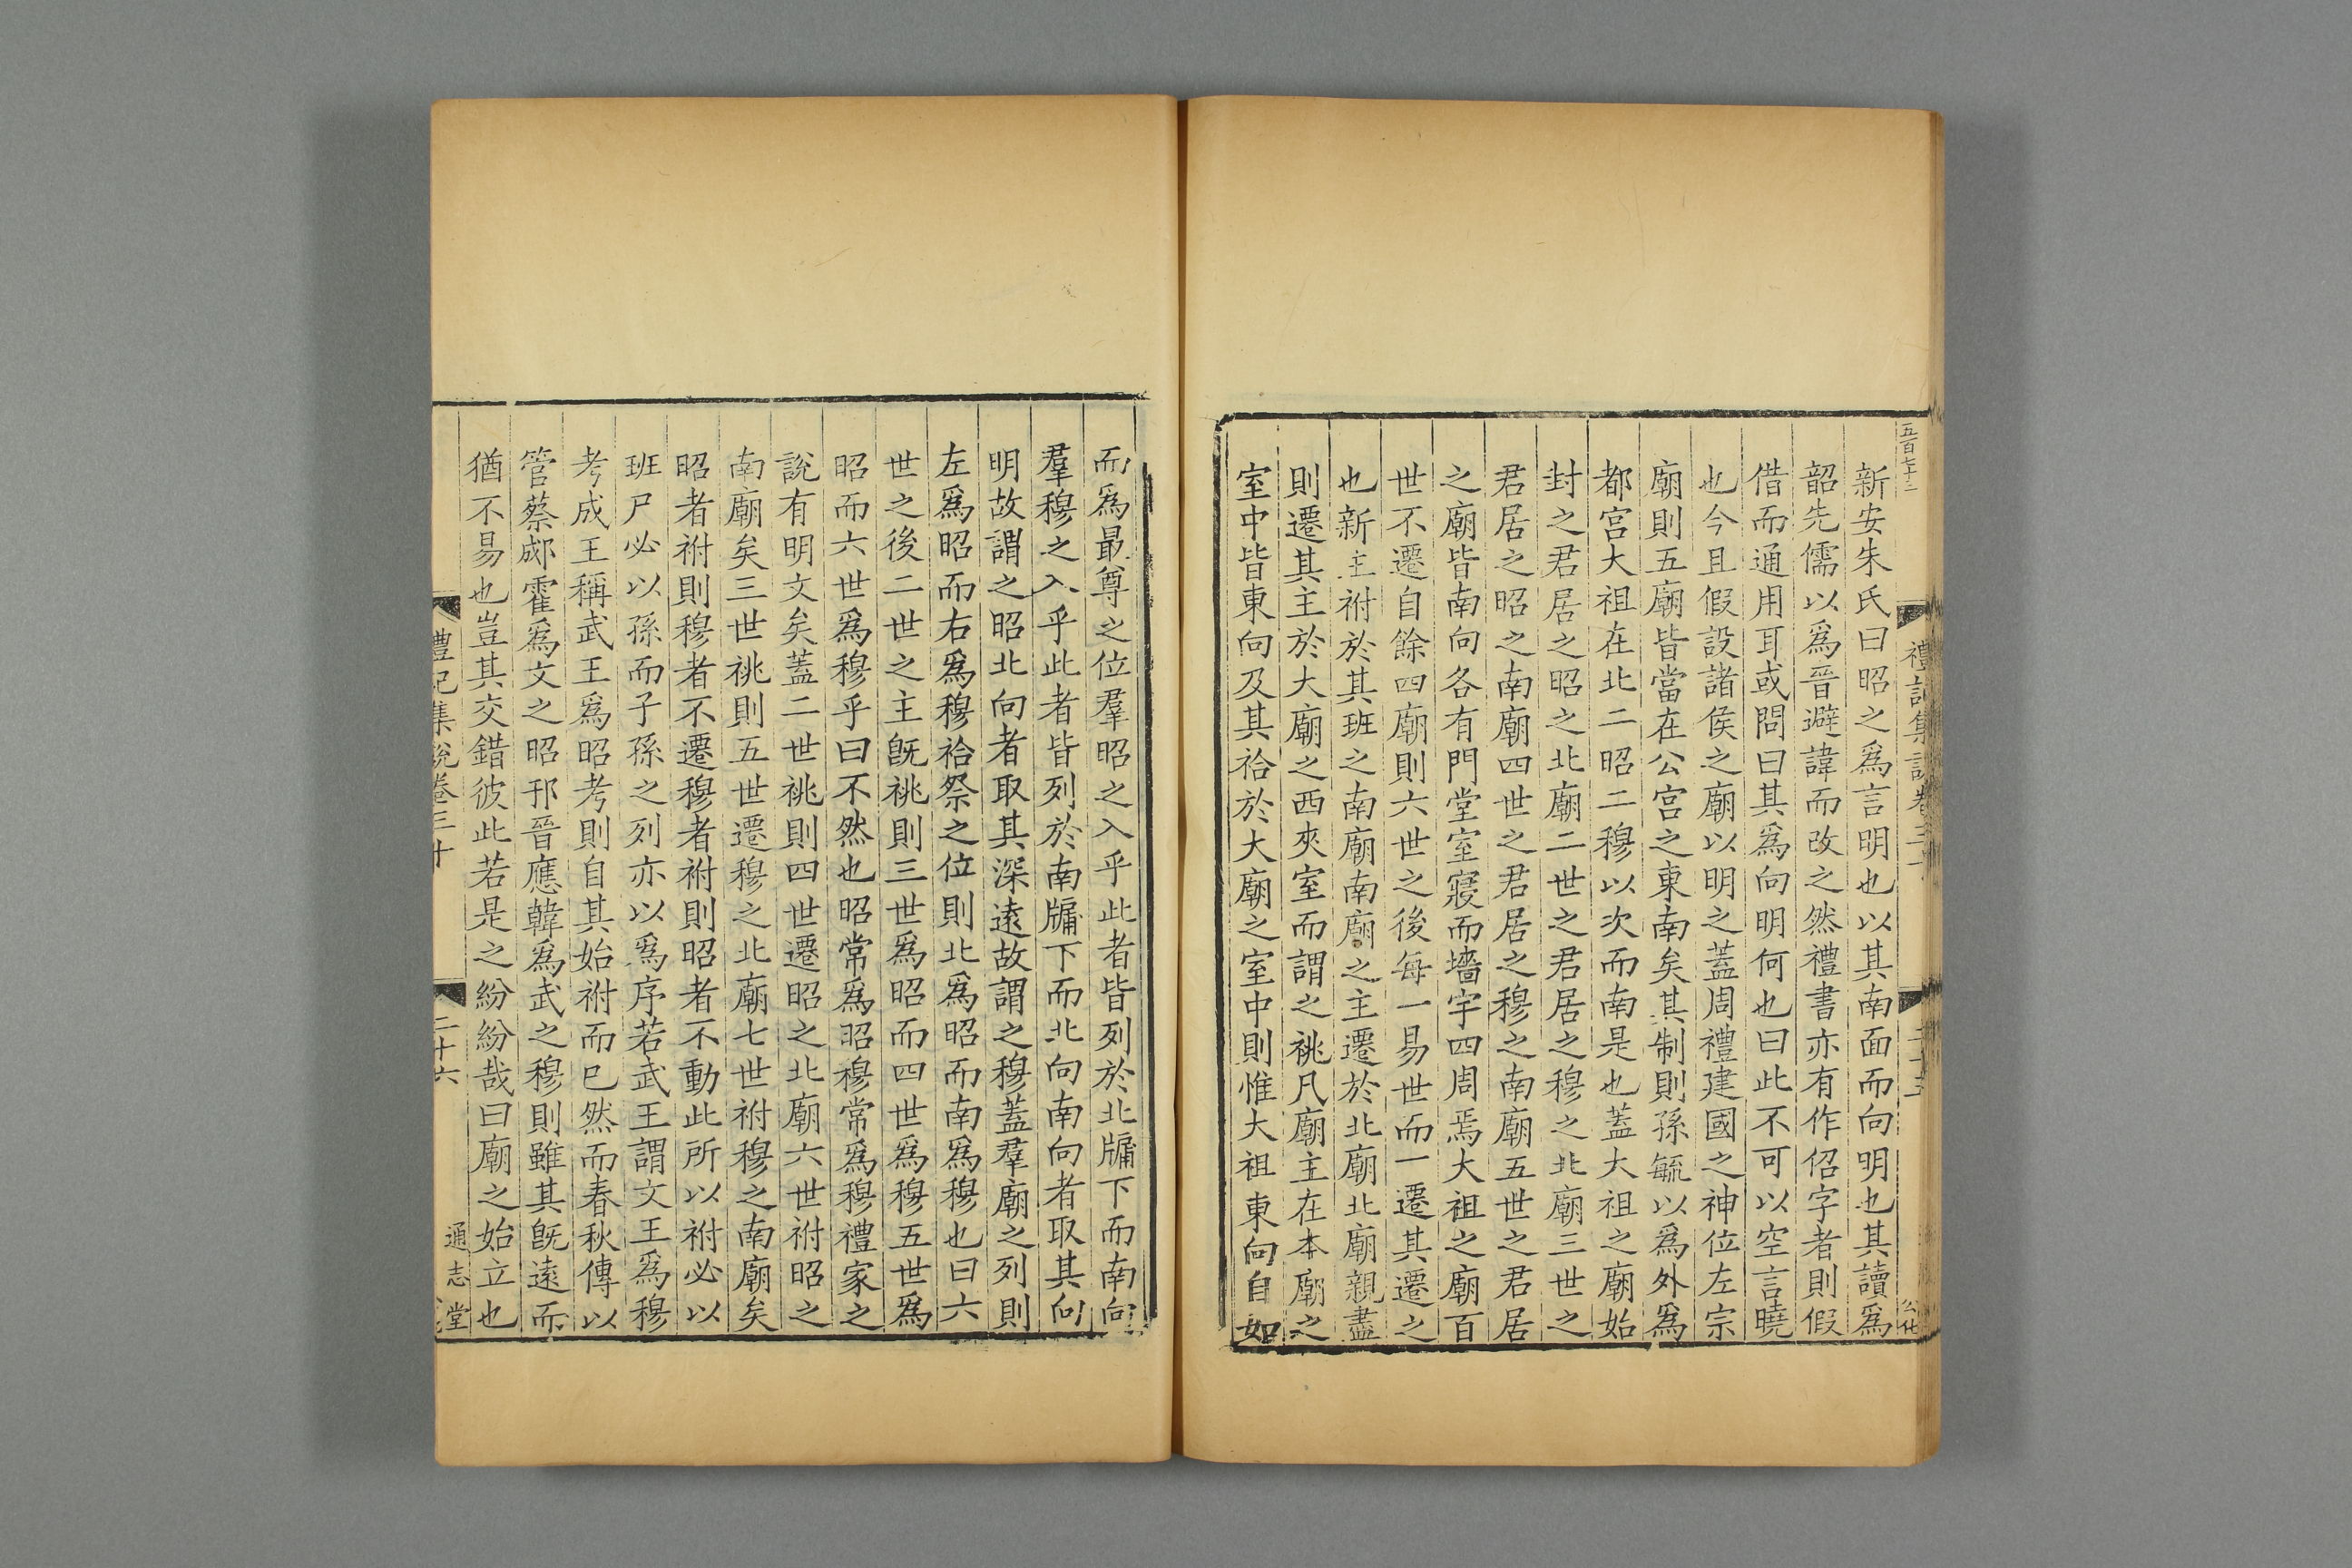 五百七十二
禮記集說卷三十
公化
新安朱氏曰昭之爲言明也以其南面而向明也其讀爲
韶先儒以爲晉避諱而改之然禮書亦有作佋字者則假
借而通用耳或問曰其爲向明何也曰此不可以空言曉
也今且假設諸侯之廟以明之蓋周禮建國之神位左宗
廟則五廟皆當在公宮之東南矣其制則孫毓以爲外爲
都宮大祖在北二昭二穆以次而南是也蓋大祖之廟始
封之君居之昭之北廟二世之君居之穆之北廟三世之
君居之昭之南廟四世之君居之穆之南廟五世之君居
之廟皆南向各有門堂室寢而墻宇四周焉大祖之廟百
世不遷自餘四廟則六世之後每一易世而一遷其遷之
也新主祔於其班之南廟南廟之主遷於北廟北廟親盡
則遷其主於大廟之西夾室而謂之祧凡廟主在本廟之
室中皆東向及其祫於大廟之室中則惟大祖東向自如
而爲最尊之位羣昭之入乎此者皆列於北牖下而南向
羣穆之入乎此者皆列於南牖下而北向南向者取其向
明故謂之昭北向者取其深遠故謂之穆蓋羣廟之列則
左爲昭而右爲穆祫祭之位則北爲昭而南爲穆也曰六
世之後二世之主旣祧則三世爲昭而四世爲穆五世爲
昭而六世爲穆乎曰不然也昭常爲昭穆常爲穆禮家之
說有明文矣蓋二世祧則四世遷昭之北廟六世祔昭之
南廟矣三世祧則五世遷穆之北廟七世祔穆之南廟矣
昭者祔則穆者不遷穆者祔則昭者不動此所以祔必以
班尸必以孫而子孫之列亦以爲序若武王謂文王爲穆
考成王稱武王爲昭考則自其始祔而已然而春秋傳以
管蔡郕霍爲文之昭邘晉應韓爲武之穆則雖其旣遠而
猶不易也豈其交錯彼此若是之紛紛哉曰廟之始立也
禮記集說卷三十
二十六
通志堂